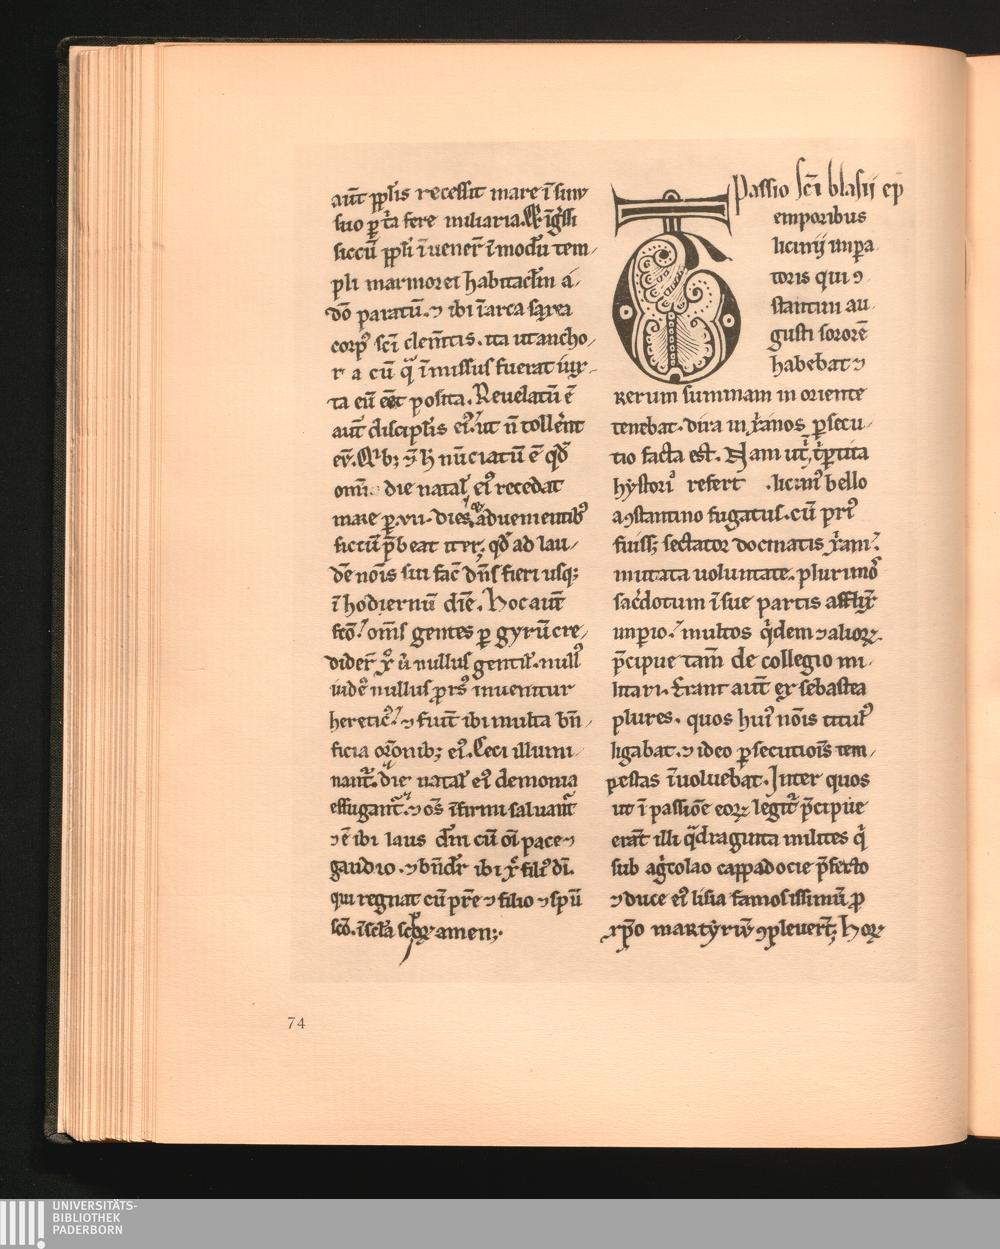 aut̄ ppłis recessit mare ī sinv
suo p̱ t̾a fere miliaria. Et īg̾ssi
siccū ppłi īuener̄ ī modū tem-
pli marmorei habitacłm a
dō paratū. ⁊ ibi ī arca saxea
corpꝰ sc̄i clem̄tis. ita ut ancho-
ra cū qͣ īmissus fuerat iux-
ta eū eēt posita. Reuelatū ē
aut̄ discipłis eiꝰ. ut n̄ tollerēt
Sꝫ ⁊ h̄ nūciatū ē qđ
omī die natał eiꝰ recedat
mare p̱ .vii. dies ⁊ aduenientibꝰ
siccū p̄beat iter; qđ ad lau-
dē nōis sui fac̄ dn̄s fieri usqꝫ
ī hodiernū diē. Hoc aut̄
scō. oms̄ gentes p̱ gyrū cre-
dider̄ xp̄o. nullus gentił. null
iudeꝰ nullus prsꝰ inuenitur
hereticꝰ. ⁊ fiūt ibi multa bn̄-
ficia orōnibꝫ eiꝰ. Ceci illumi-
nant̄. die natał eiꝰ demonia
effugant̄. ⁊ oms̄ īfirmi saluant̄
⁊ ē ibi laus dīm cū oī pace ⁊
gaudio. ⁊ bn̄dr̄ ibi xp̄c filiꝰ dī.
qui regnat cū pr̄e ⁊ filio ⁊ spū
scō. ī scła scłoꝝ amen;.
Passio sc̄i blasii ep̄
Temporibus
licinij impa
toris qui ꝯ
stantini au
gusti sororē
habebat ⁊
rerum summam in oriente
tenebat. dira in xp̄ianos p̱secu-
tio facta est. Nam ut t̾p̱tita
hystoriꝰ refert .liciniꝰ bello
a ꝯstantino fugatus. cū priꝰ
fuissꝫ sectator docmatis xp̄iani.
mutata uoluntate. plurimos
sac̾dotum ī sue partis afflix̄
imp̱io. multos qͥdem ⁊ alioꝝ.
p̄cipue tam̄ de collegio mi-
litari. Erant aut̄ ex sebastea
plures. quos huiꝰ nōis titulꝰ
ligabat. ⁊ ideo p̱secutiōis tem-
pestas īuoluebat. Inter quos
ut ī passiōe eoꝝ legit̄ p̄cipue
erāt illi qͣdraginta milites qͥ
sub ag̾colao cappadocie p̄fecto
⁊ duce eiꝰ lisia famosissimū p̱
xp̄o martyriū ꝯpleuert̄; Hoꝝ
74
UNIVERSITÄTS-
BIBLIOTHEK
PADERBORN